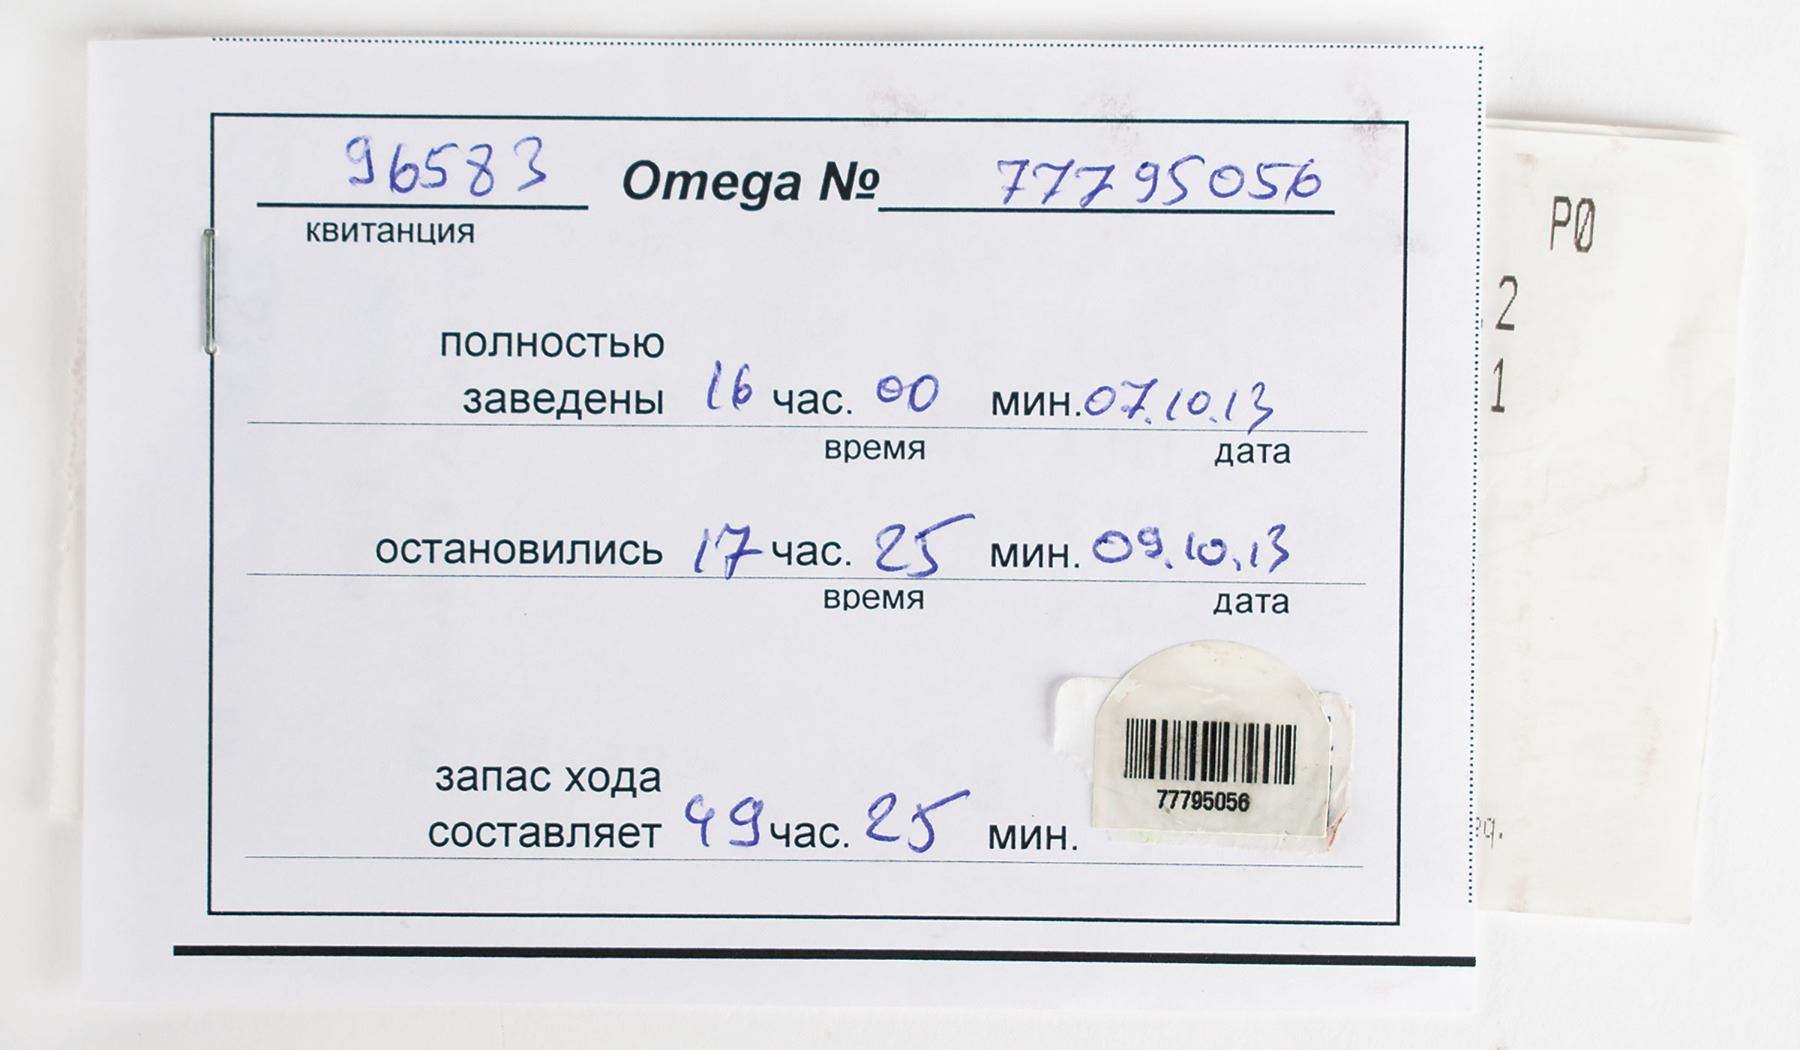 96583 Omega № 77795056
квитанция
полностью
заведены 16 час. 00 мин. 07.10.13
время дата
остановились 17 час. 25 мин. 09.10.13
время дата
запас хода
составляет 49 час. 25 мин.
77795056
P0
2
1